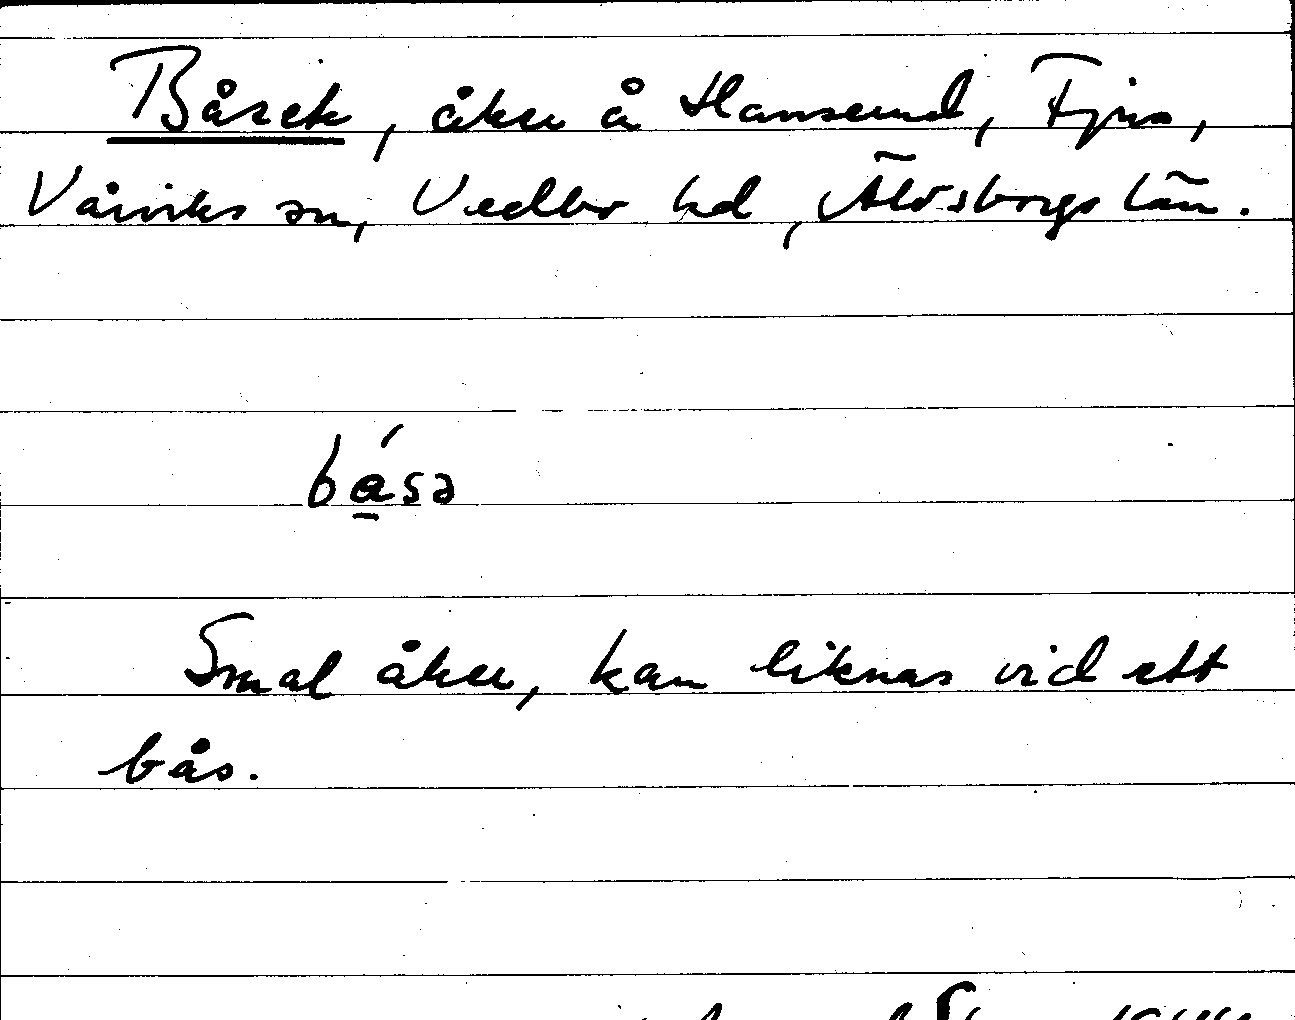 Båset, åker å Hanserud, Fjus,
Vårviks sn, Vedbo hd, Älvsborgs län.
básə
Smal åker, kan liknas vid ett
bås.